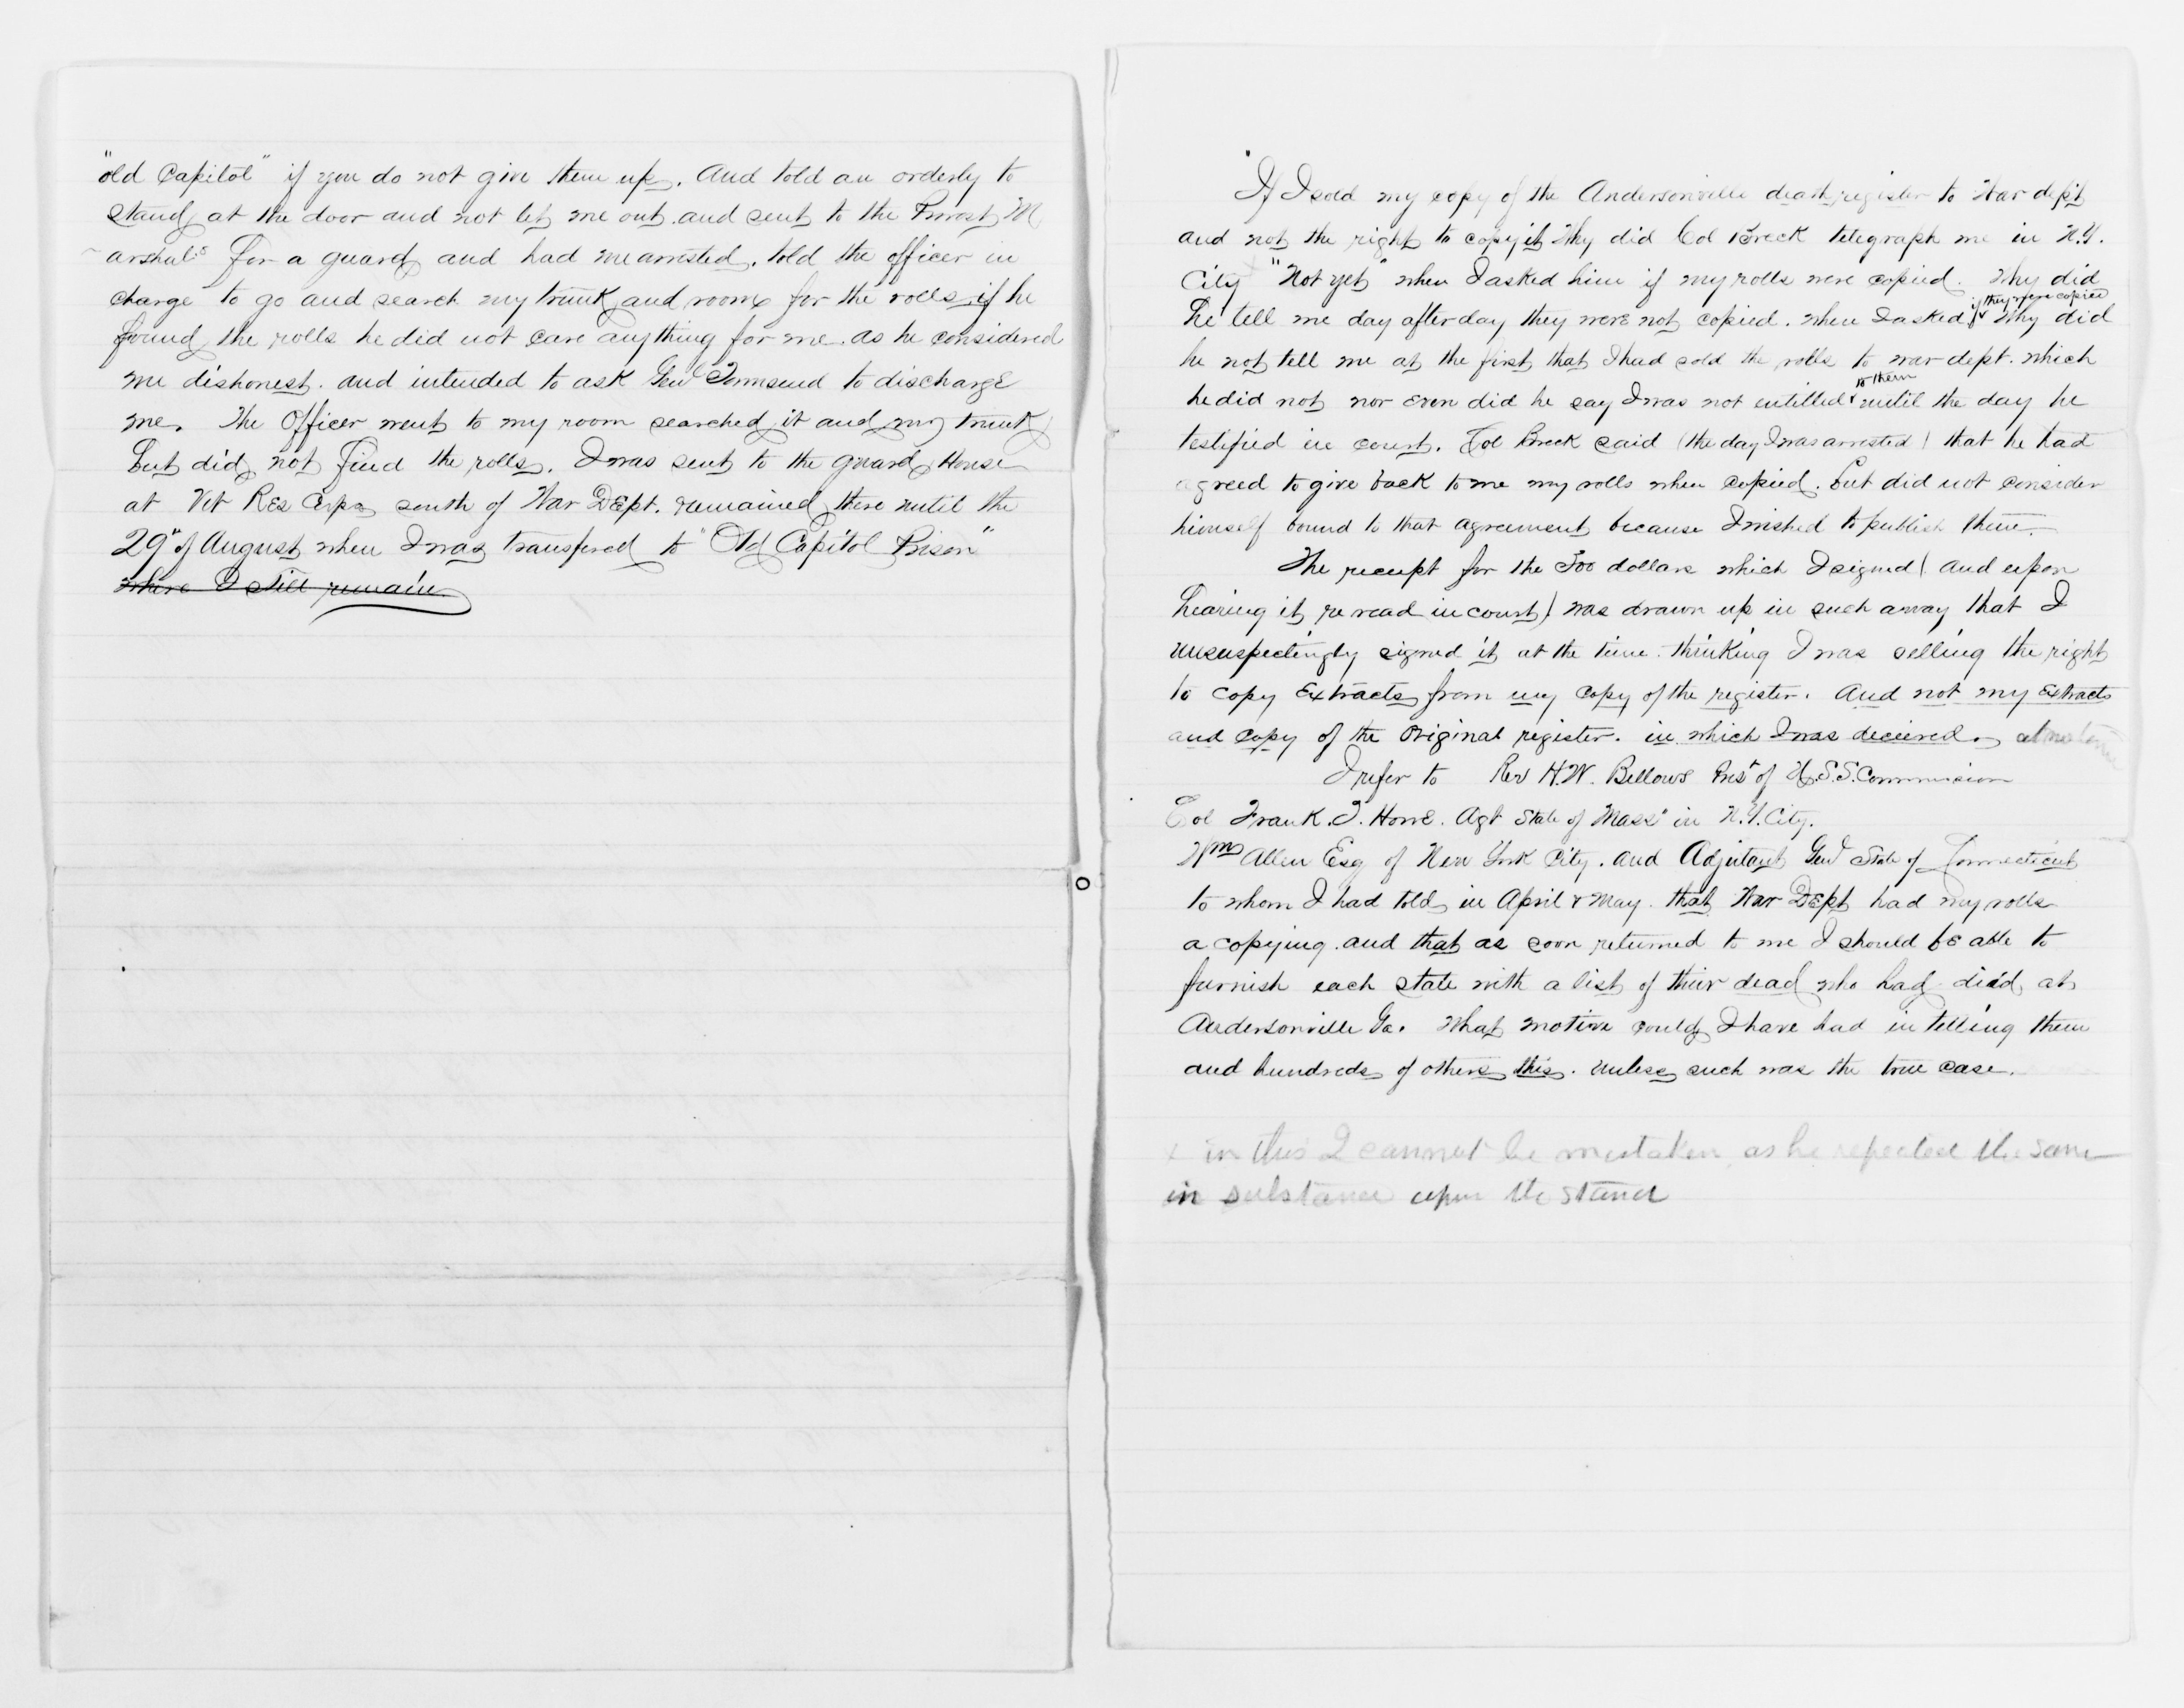 "old Capitol" if you do not give them up. And told an orderly to
stand at the door and not let me out. and sent to the Provost M
arshals for a guard and had me arrested. told the officer in
charge to go and search my trunk and room for the rolls if he
found the rolls he did not care anything for me. as he considered
me dishonest. and intended to ask Genl Townsend to discharge
me. The Officer went to my room searched it and my trunk
but did not find the rolls. I was sent to the guard House
at Vet Res Corps south of War DEpt. remained there until the
29" of August when I was transfered to "Old Capitol Prison"
where I still remain
If I sold my copy of the Andersonville death register to War dep't
and not the right to copy it Why did Col Breck telegraph me in N.Y.
City "Not yet" when I asked him if my rolls were copied. Why did
he tell me day after day they were not copied. when I asked if they were copied Why did
he not tell me at the first that I had sold the rolls to war dept. which
he did not nor even did he say I was not entitled to them until the day he
testified in court. Col Breck said (the day I was arrested) that he had
agreed to give back to me my rolls when copied. but did not consider
himself bound to that agreement because I wished to publish them.
The receipt for the 300 dollars which I signed (and upon
hearing it re read in court) was drawn up in such away that I
unsuspectingly signed it at the time. thinking I was selling the right
to copy Extracts from my copy of the register. And not my Extracts
and copy of the Original register. in which I was deceived. at no time
I refer to Rev H.W. Bellows Prest of U.S.S. Commission
Col Frank. E. Howe. Agt State of Mass" in N.Y. City.
Wm Allen Esq of New York City. and Adjutant Genl State of Connecticut
to whom I had told in April & May that War DEpt had my rolls
a copying. and that as soon returned to me I should be able to
furnish each state with a list of their dead who had died at
Andersonville Ga. What motive could I have had in telling them
and hundreds of others this. unless such was the true case.
x in this I cannot be mistaken, as he repeated the same
in substance upon the stand